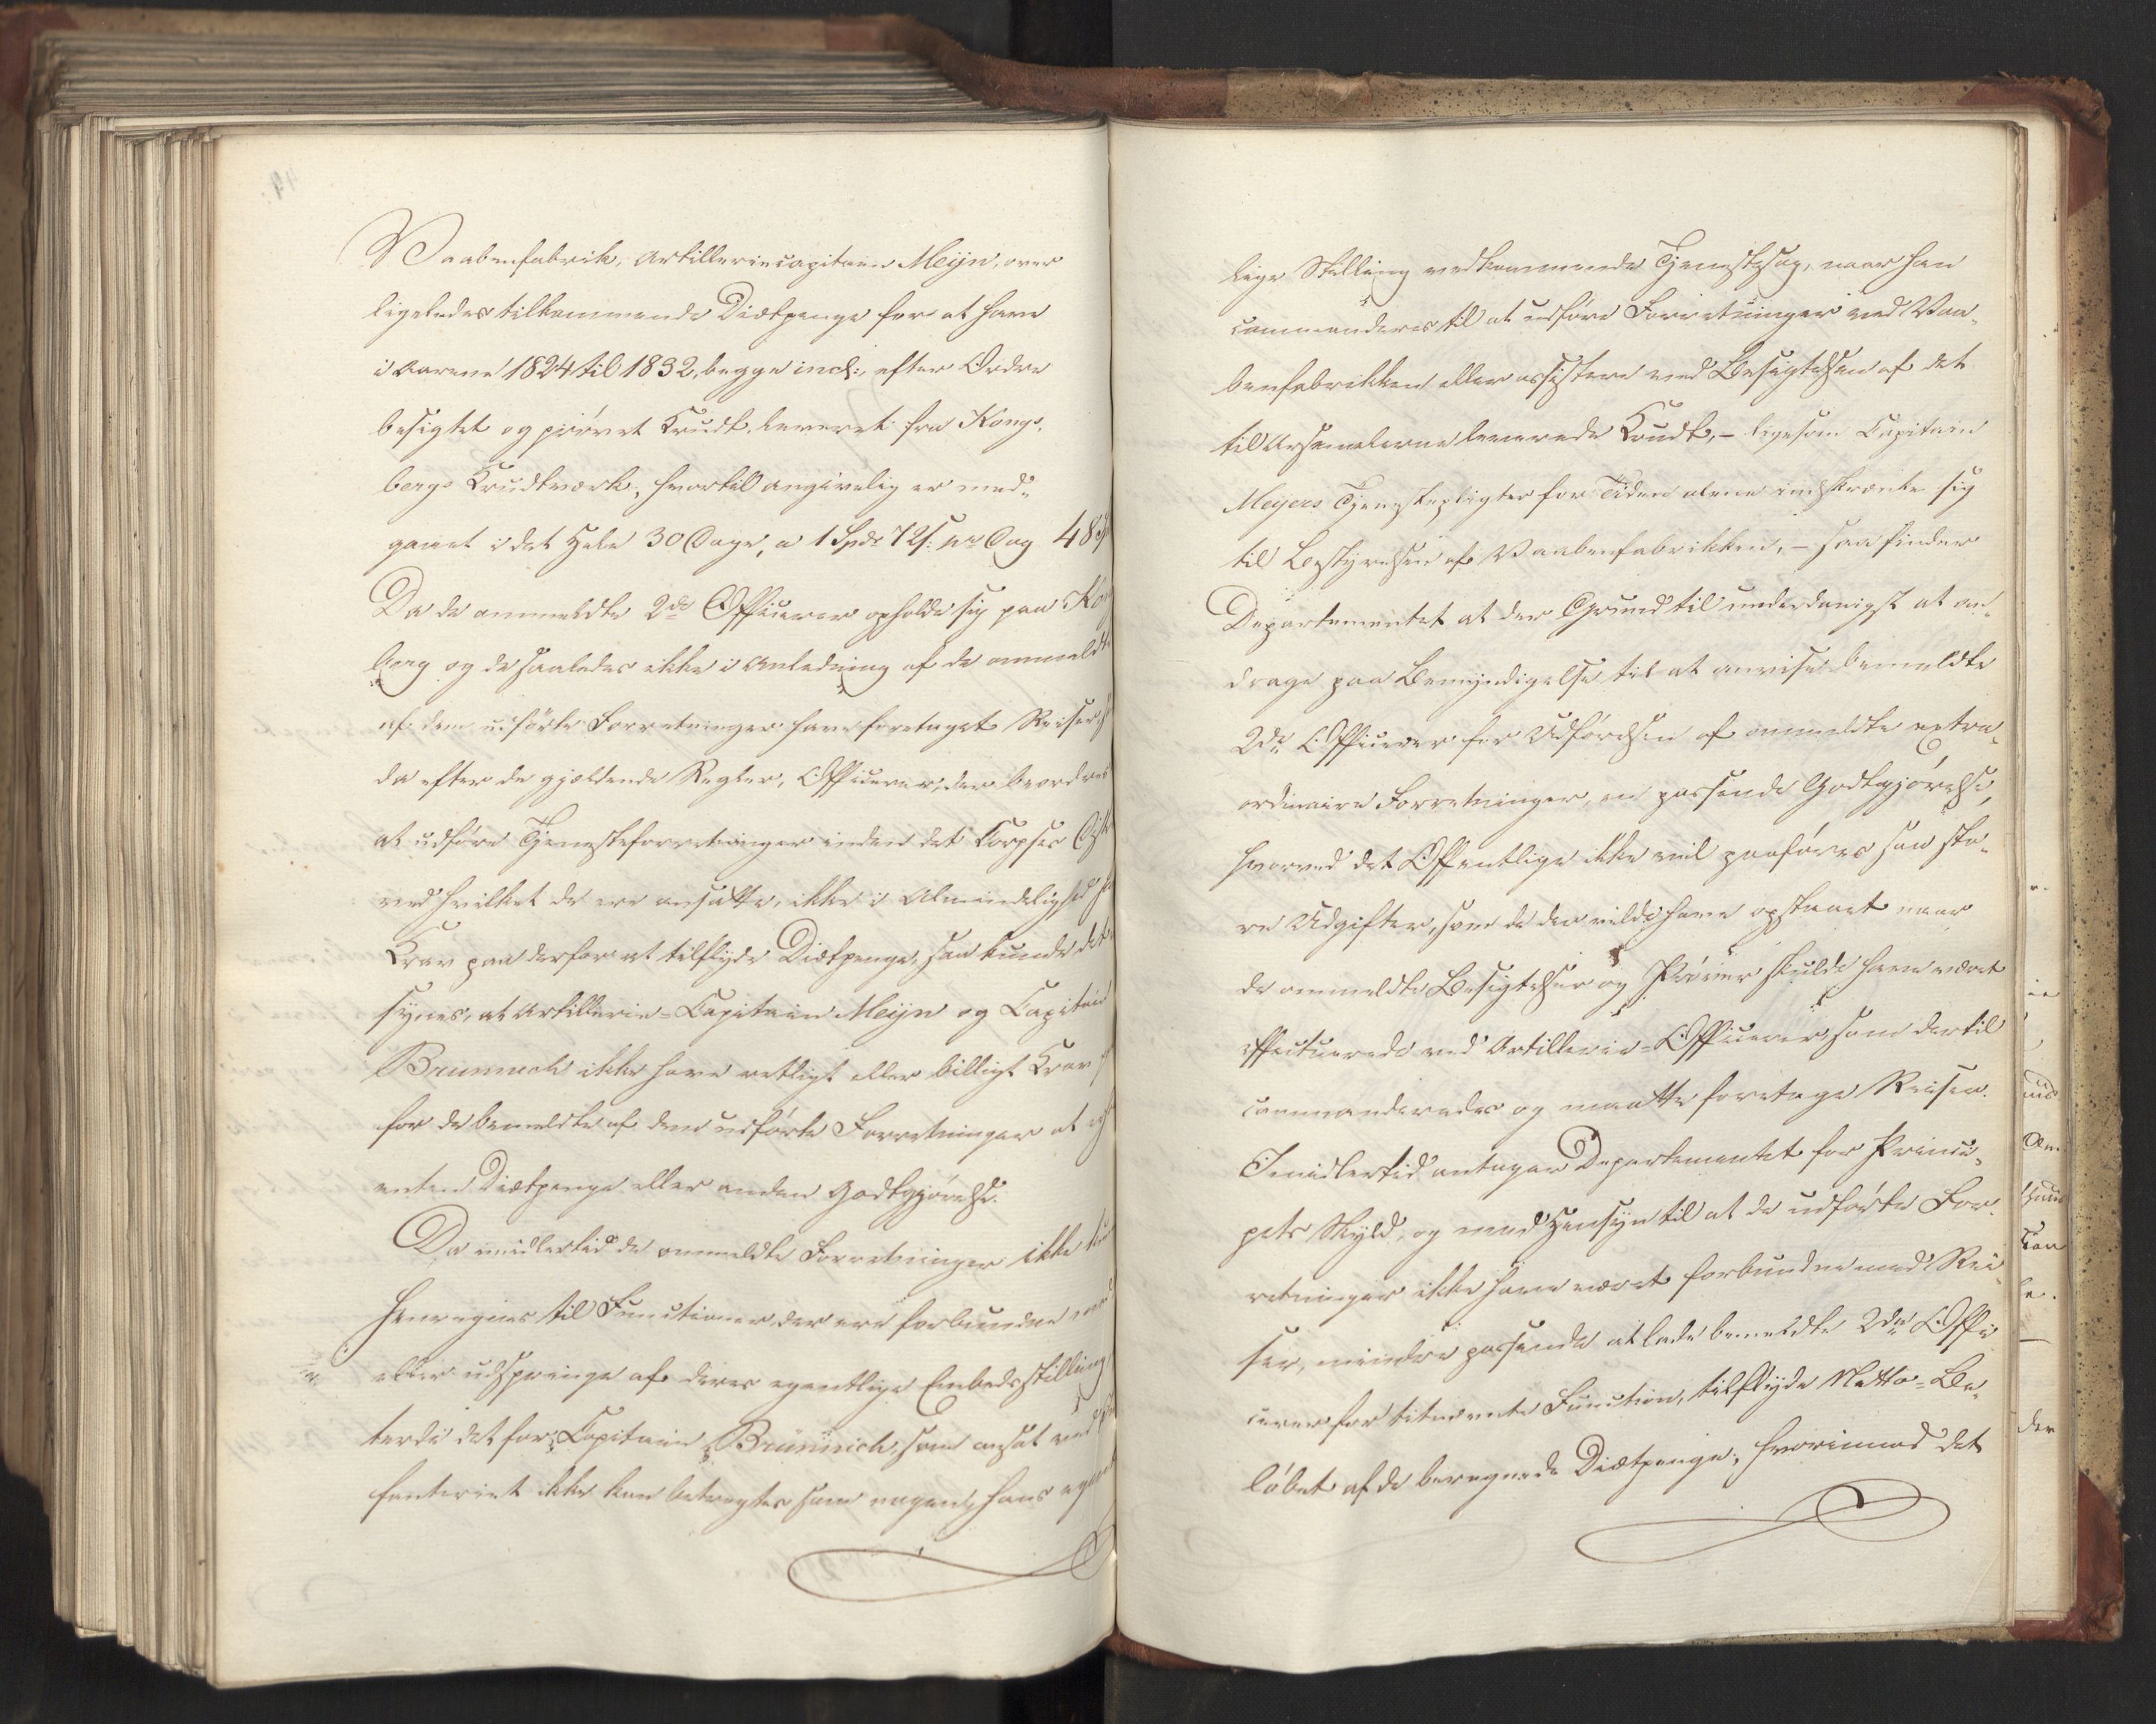 Vaabenfabrik, Artilleriecapitain Meijn, over
ligeledes tilkommende Diætpenge for at have
i Aarene 1824 til 1832, begge incl:, efter Ordre
besigtet og prövet Krudt leveret fra Kongs,
bergs Krudtværk, hvortil angivelig er med-
gaaet i det Hele 30 Dage, a 1 Spd 72 s: pr Dag 48 Sp
Da de ommeldte 2de Officierer opholde sig paa Kongs
berg og de saaledes ikke i Anledning af de ommeldte
af dem udförte Forretninger have foretaget Reiser,
da efter de gjældende Regler, Officierer, der beordres
at udföre Tjenesteforretninger inden det Corpses
ved hvilket de ere ansatte, ikke i Almindelighed
Krav paa derfor at tilflyde Diætpenge, saa kunde det
synes, at Artillerie-Capitain Meijn og Capitain
Brünnich ikke have retligt eller billigt Krav
for de bemeldte af dem udförte Forretninger at
enten Diætpenge eller anden Godtgjörelse.
Da imidlertid de ommeldte Forretninger ikke
henregnes til Functioner der ere forbundne med
eller udspringe af deres egentlige Embedsstilling
terdi det for Capitain Brünnich, som ansat ved
fanteriet ikke kan betragtes som nogen, hans egent
lige Stilling vedkommende Tjenestesag, naar han
commanderes til at udföre Forretninger ved Vaa-
benfabrikken eller assistere ved Besigtelsen af det
til Arsenalerne leverede Krudt, - ligesom Capitain
Meyers Tjenestepligter for Tiden alene indskrænke sig
til Bestyrelsen af Vaabenfabrikken, - saa finder
Departementet at der Grund til underdanigst at an-
drage paa Bemyndigelse til at anvise bemeldte
2de Officierer for Udförelsen af ommeldte extra-
ordinaire Forretninger, en passende Godtgjörelse,
hvorved det Offentlige ikke vil paaföres saa sto-
re Udgifter, som de der vilde have opstaaet naar
de ommeldte Besigtelser og Pröver skulde have været
effectuerede ved Artillerie-Officierer som dertil
commanderedes og maatte foretage Reisen.
Imidlertid antager Departementet for Princi-
pets Skyld, og med Hensyn til at de udförte For-
retninger ikke have været forbundne med Rei
ser, mindre passende at lade bemeldte 2de Offi
cierer for titnævnte Function, tilflyde Netto-Be-
löbet af de beregnede Diætpenge, hvorimod det